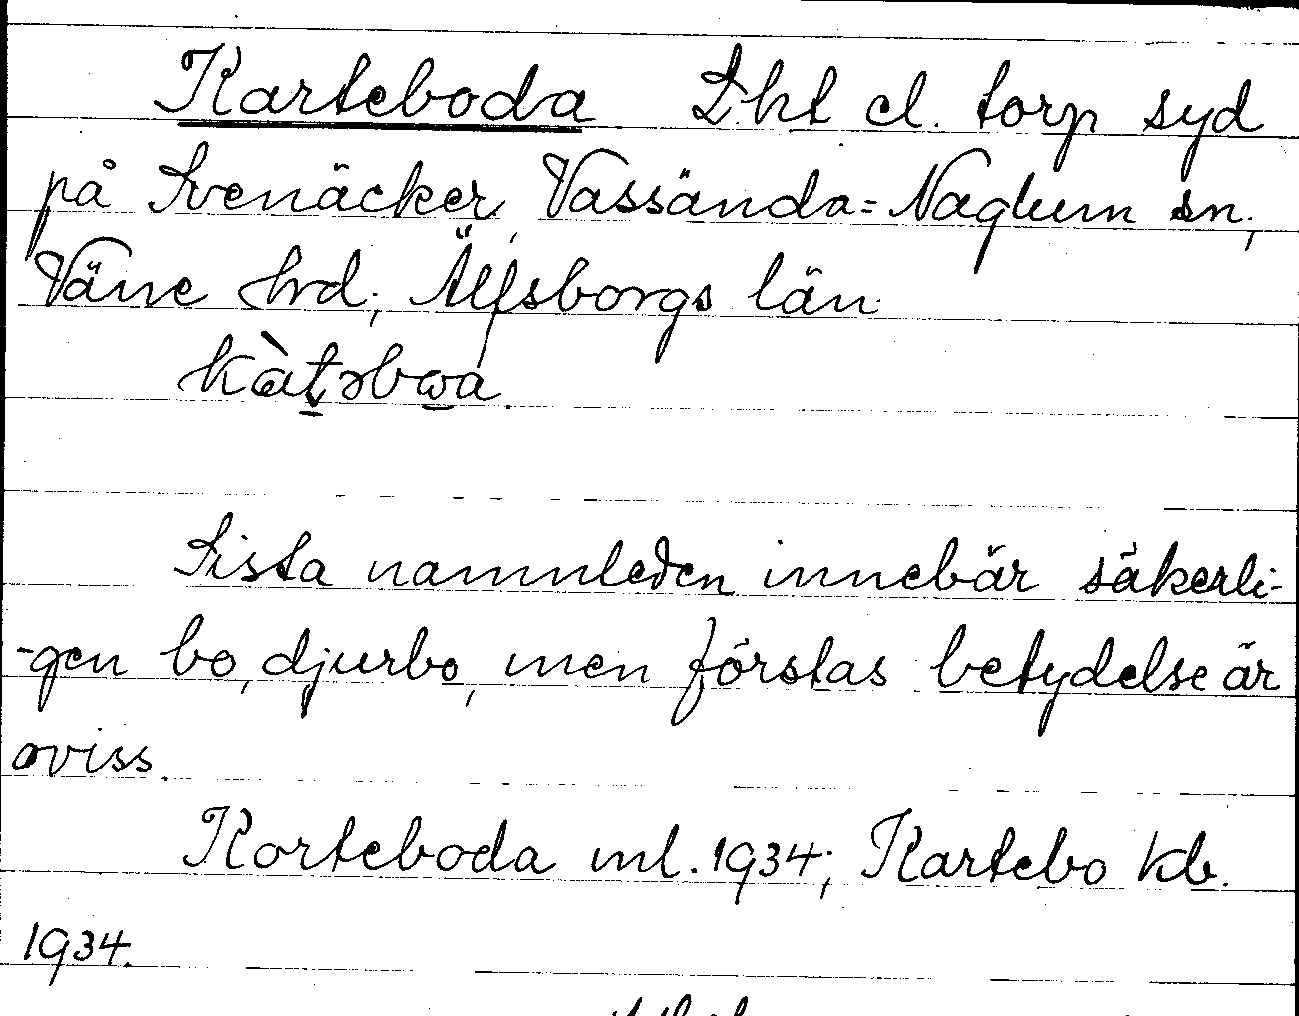 Karteboda Lht el. torp syd
på Svenäcker, Vassända-Naglum sn,
Väne hrd, Älfsborgs län
kàt̠ɔbwa̠.
Sista namnleden innebär säkerli-
-gen bo, djurbo, men förstas betydelse är
oviss.
Korteboda ml. 1934; Kartebo kb.
1934.